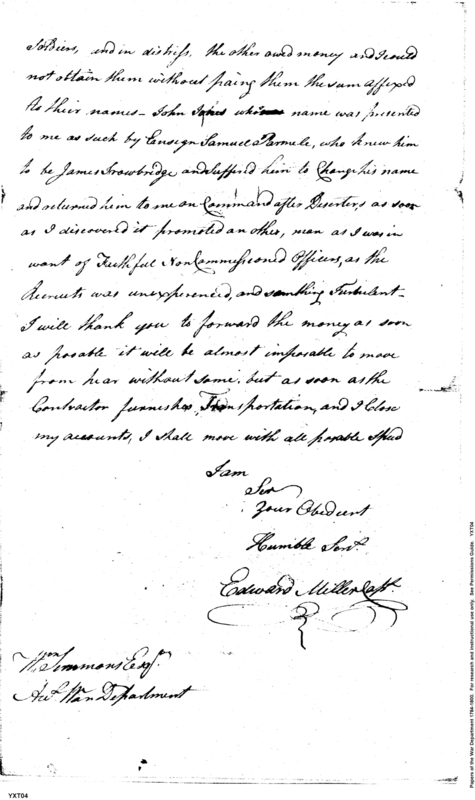 Soldiers, and in distress, the other owed money and I could
not obtain them without paing them the sum affixed
to their names - John Jones whose name was presented
to me as such by Ensign Samuel Parmele, who knew him
to be James Trowbridge and Suffered him to Change his name
and returned him to me on Command after Deserters, as soon
as I discovered it promoted an other, man as I was in
want of Faithful NonCommissioned Officers, as the
Recruits was unexperenced, and somthing Turbulent -
I will thank you to forward the money as soon
as posable it will be almost imposable to move
from hear without some, but as soon as the
Contractor furneshes Transportation, and I Close
my accounts, I shall move with all posable Speed
I am
Sir
Your Obedient
Humble Servt.
Edward Miller Capt.
Wm Simmons Esqr.
Act. War Department
YXT04
Papers of the War Department 1784-1800. For research and instructional use only. See Permissions Guide. YXT04